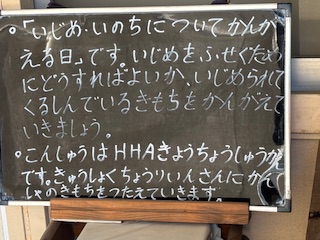 。「いじめ・いのちについてかんが
える日」です。いじめをふせぐため
にどうすればよいか、いじめられて
くるしんでいるきもちをかんがえて
いきましょう。
。こんしゅうはHHAきょうちょうしゅうかん
です。きゅうしょくちょうりいんさんにかん
しゃのきもちをつたえていきます。